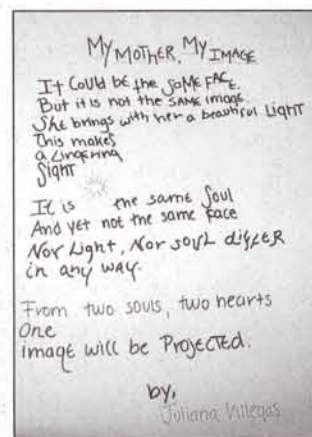 My MOTHER, My IMAGE
It Could be the SAME FACE.
But it is not the SAME image.
She brings with her a beautiful Light
This makes
a Lingering
Sight
It is the same Soul
And yet not the same face
Nor Light, Nor soul differ
in any way.
From two souls, two hearts
One
image will be Projected.
by,
Juliana Villegas